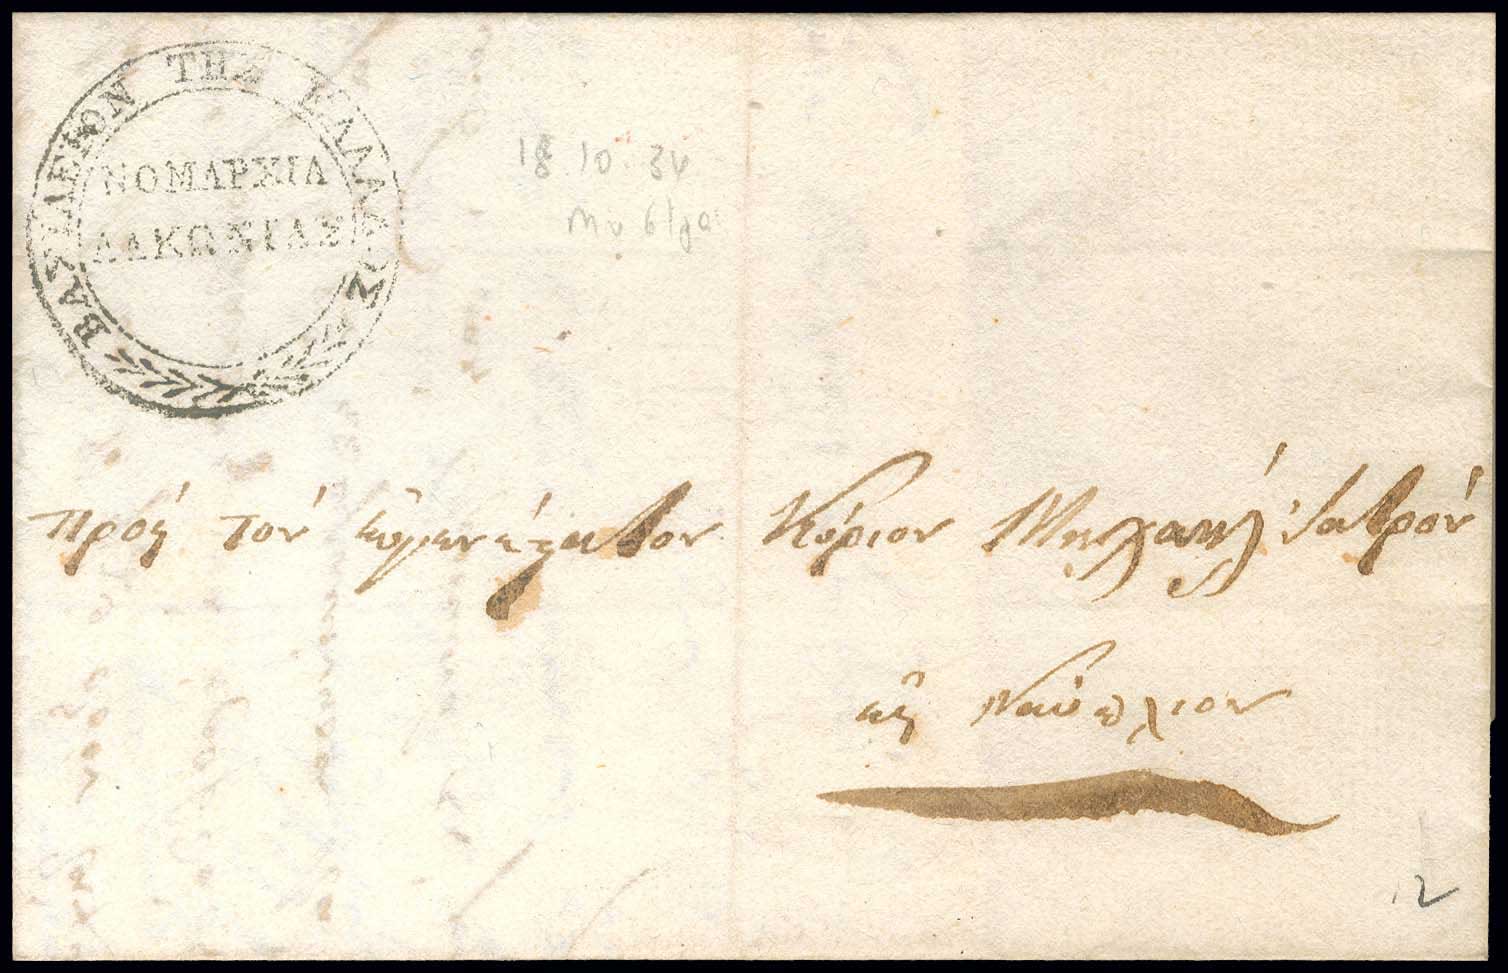 ΒΑΣΙΛΕΙΟΝ ΤΗΣ ΕΛΛΑΔΟΣ
ΝΟΜΑΡΧΙΑ
ΛΑΚΩΝΙΑΣ
18 10 34
Πρὸς τὸν εὐγενέστατον Κύριον Μιχαὴλ Ἰατρόν
εἰς Ναύπλιον
12